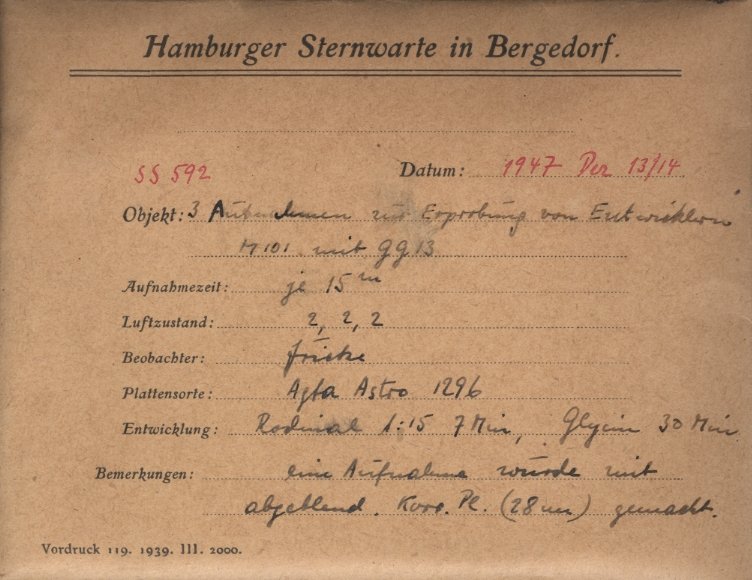 Hamburger Sternwarte in Bergedorf.
SS 592
Datum: 1947 Dez 13/14
Objekt: 3 Aufnahmen zur Erprobung von Entwicklern
M 101 mit GG 13
Aufnahmezeit: je 15 m
Luftzustand: 2, 2, 2
Beobachter: Fricke
Plattensorte: Agfa Astro 1296
Entwicklung: Rodinal 1:15 7 Min, Glycin 30 Min
Bemerkungen: eine Aufnahme wurde mit
abgeblend. Korr. Pl. (28 cm) gemacht.
Vordruck 119. 1939. III. 2000.